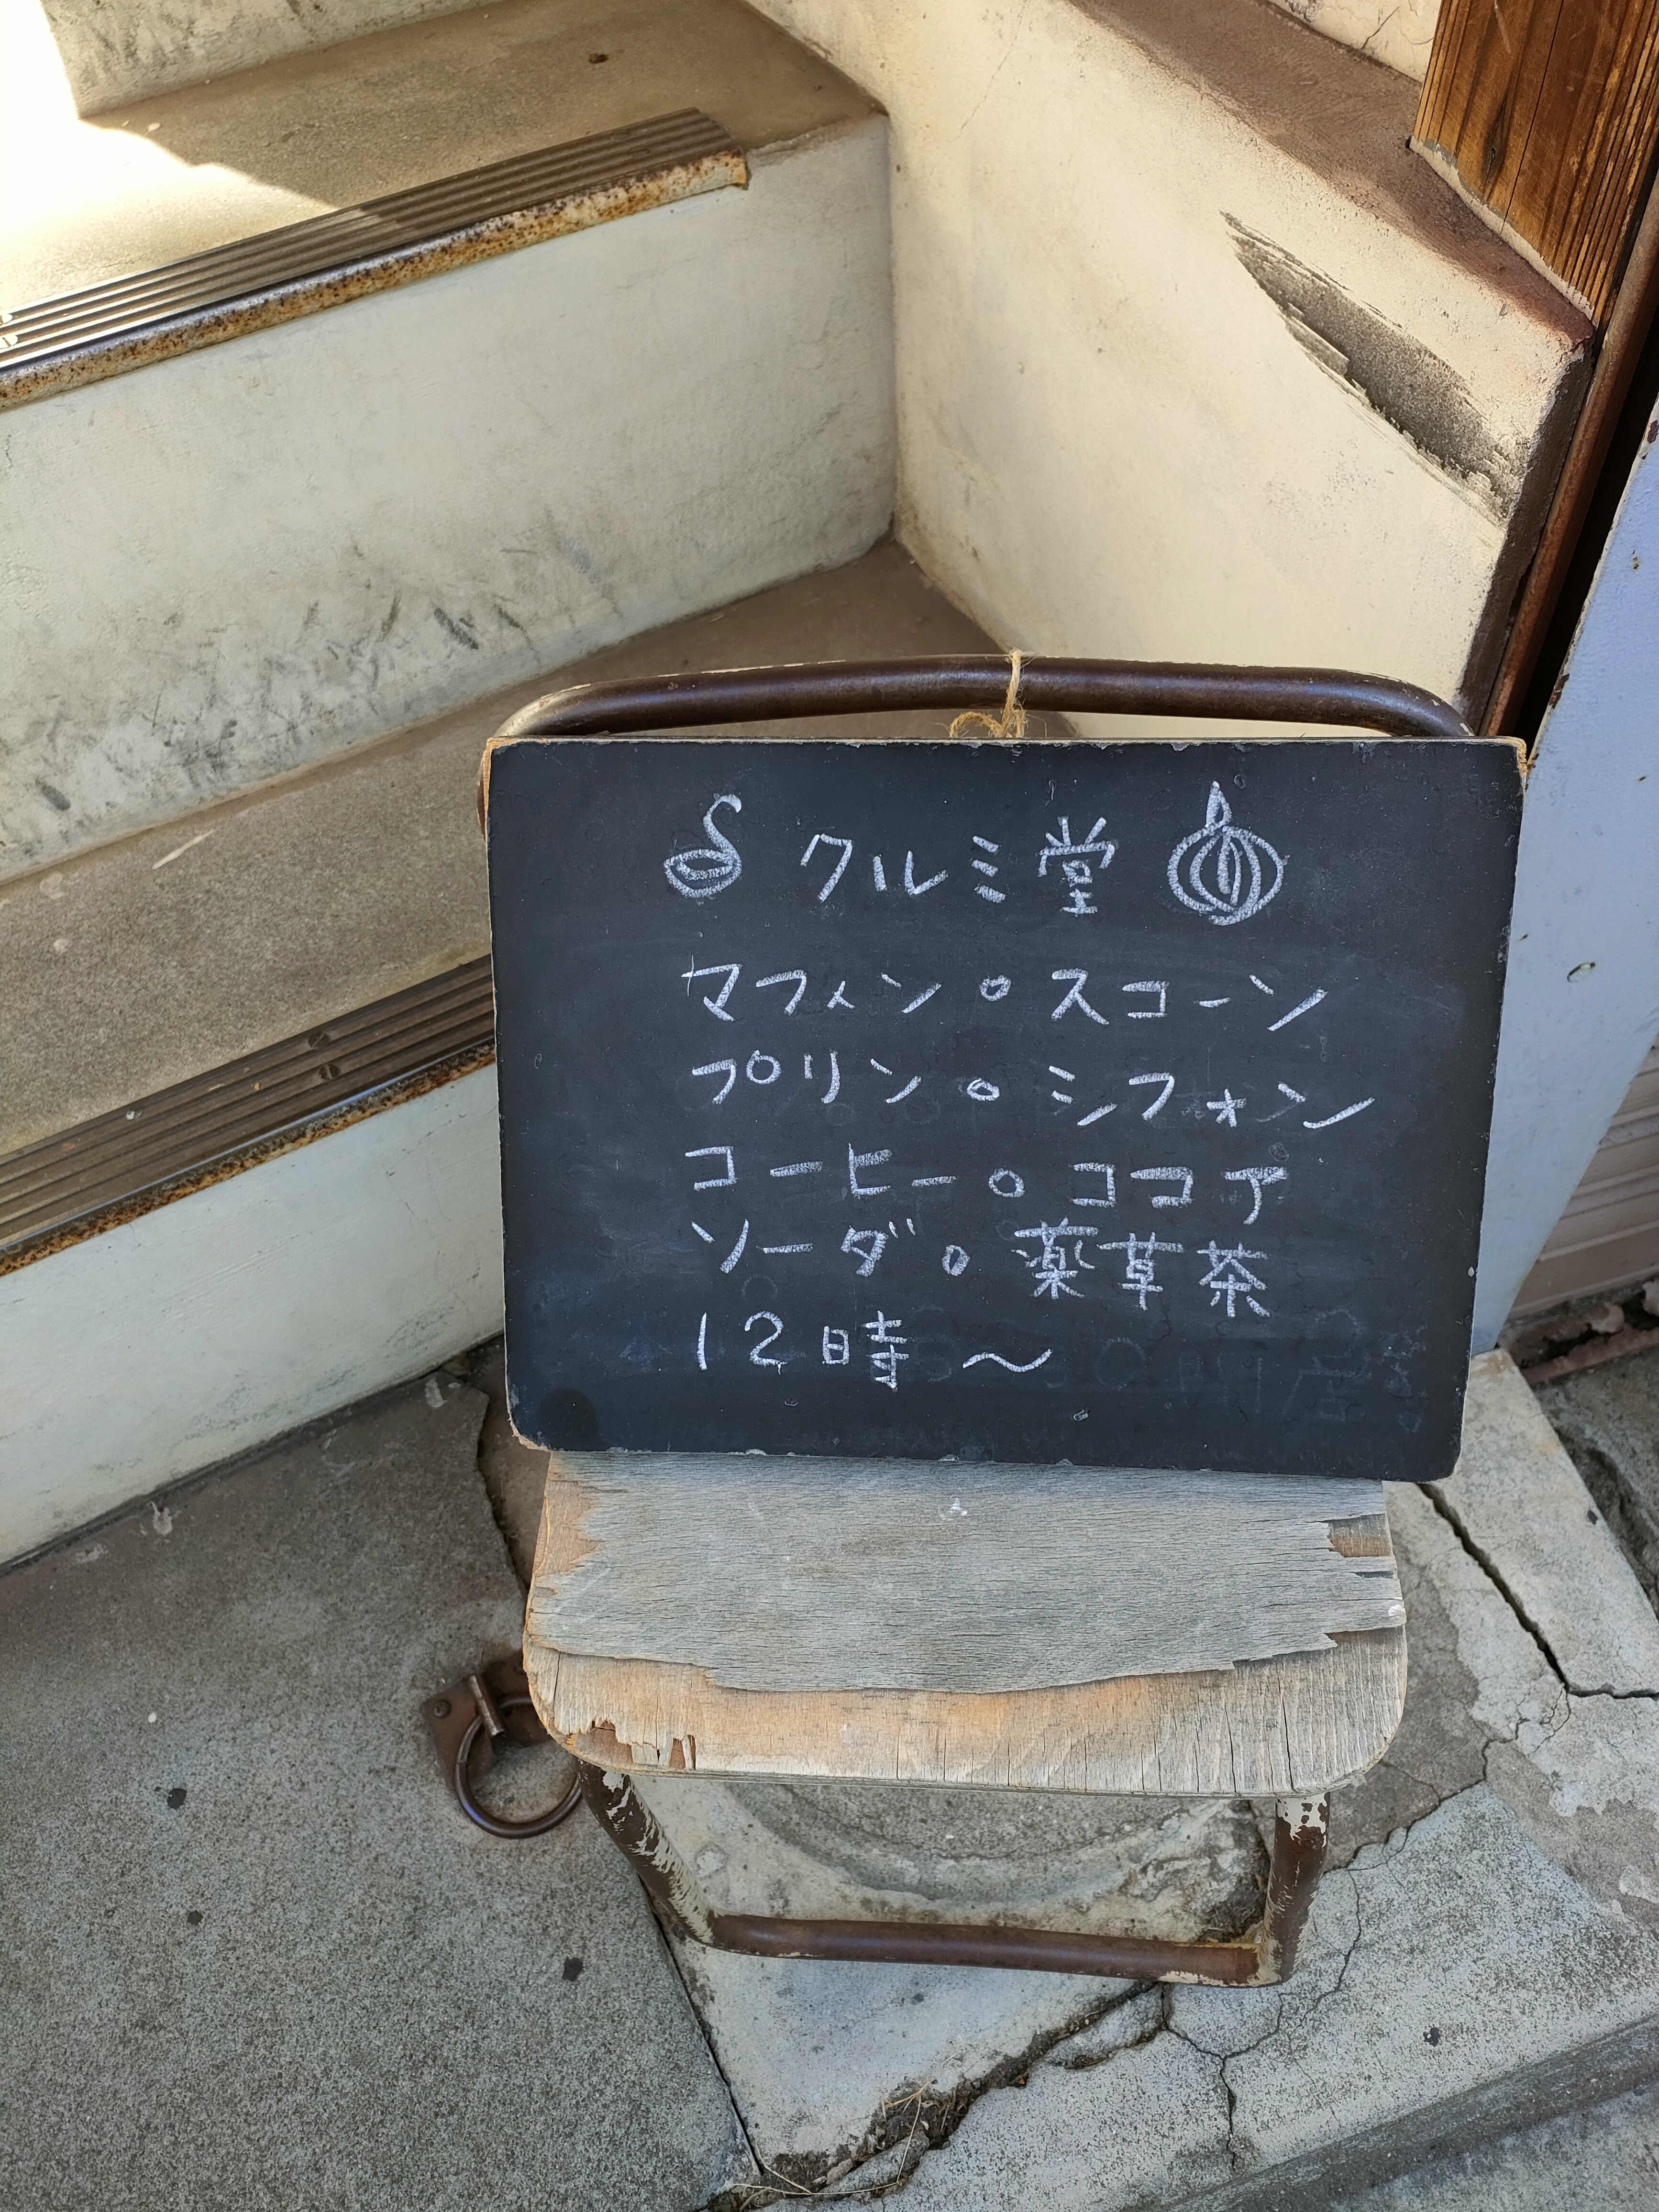 クルミ堂
マフィン。スコーン
プリン。シフォン
コーヒー。ココア
ソーダ。薬草茶
12時〜